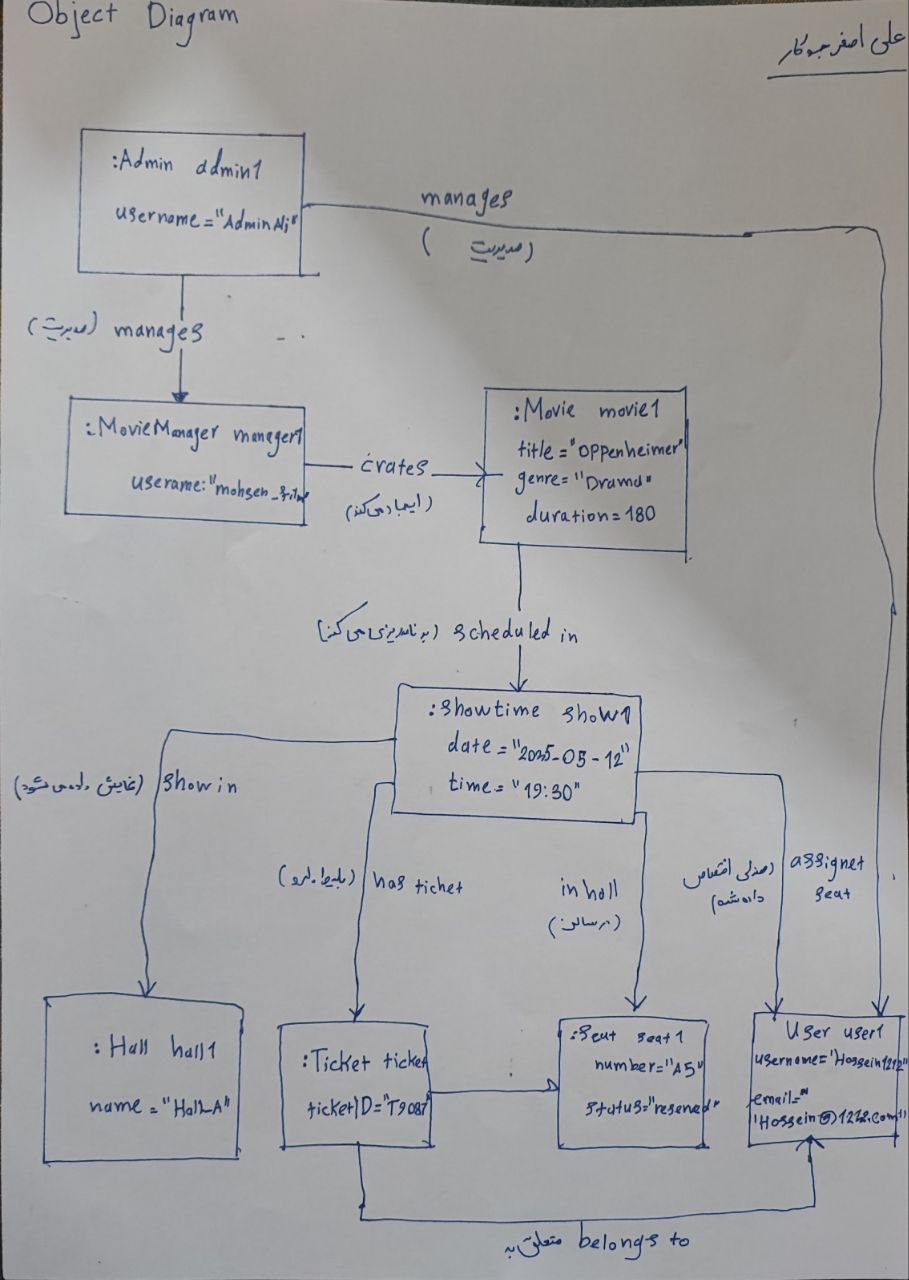 Object Diagram
علی اصغر جوکار
:Admin admin1
username="AdminAli"
manages
(مدیریت)
(مدیریت) manages
:MovieManager manager1
userame:"mohsen_film"
crates
(ایجاد می‌کند)
:Movie movie1
title="Oppenheimer"
genre="Drama"
duration=180
(برنامه‌ریزی می‌کند) scheduled in
:Showtime show1
date="2025-05-12"
time="19:30"
(نمایش داده می‌شود) show in
(بلیط دارد) has ticket
in hall
(در سالن)
(صندلی اختصاص داده شده) assignet
seat
:Hall hall1
name="Hall_A"
:Ticket ticket
ticketID="T9087"
:Seat seat1
number="A5"
status="reserved"
User user1
username="Hossein1212"
email="
"Hossein@1212.com"
متعلق به belongs to